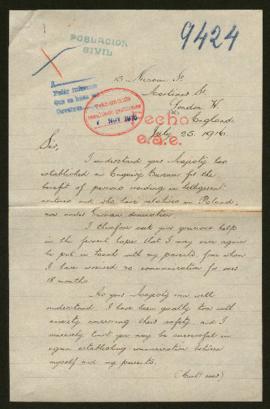 POBLACION
CIVIL
9424
13 St.
London W.
England.
Hecho
e.a.e.
July 25. 1916.
Sir,
I understand your Majesty has
established an Enquiry Bureau for the
benefit of persons residing in belligerent
countries and who have relatives in Poland,
now under German domination.
I therefore ask your generous help
in the fervent hope that I may once again
be put in touch with my parents from whom
I have received no communication for over
18 months.
As your Majesty may well
understand I have been greatly torn with
anxiety concerning their safety and I
sincerely trust you may be successful in
again establishing communication between
myself and my parents.